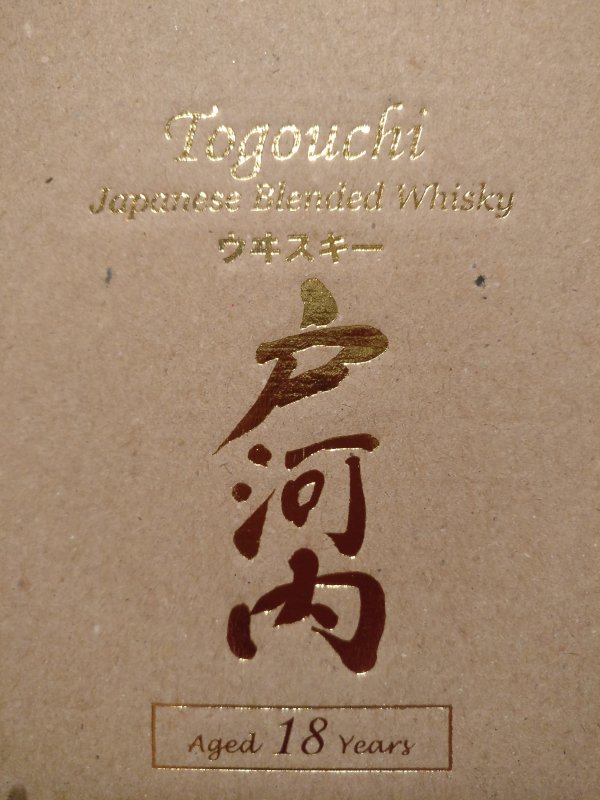 Togouchi
Japanese Blended Whisky
ウヰスキー
戸河内
Aged 18 Years